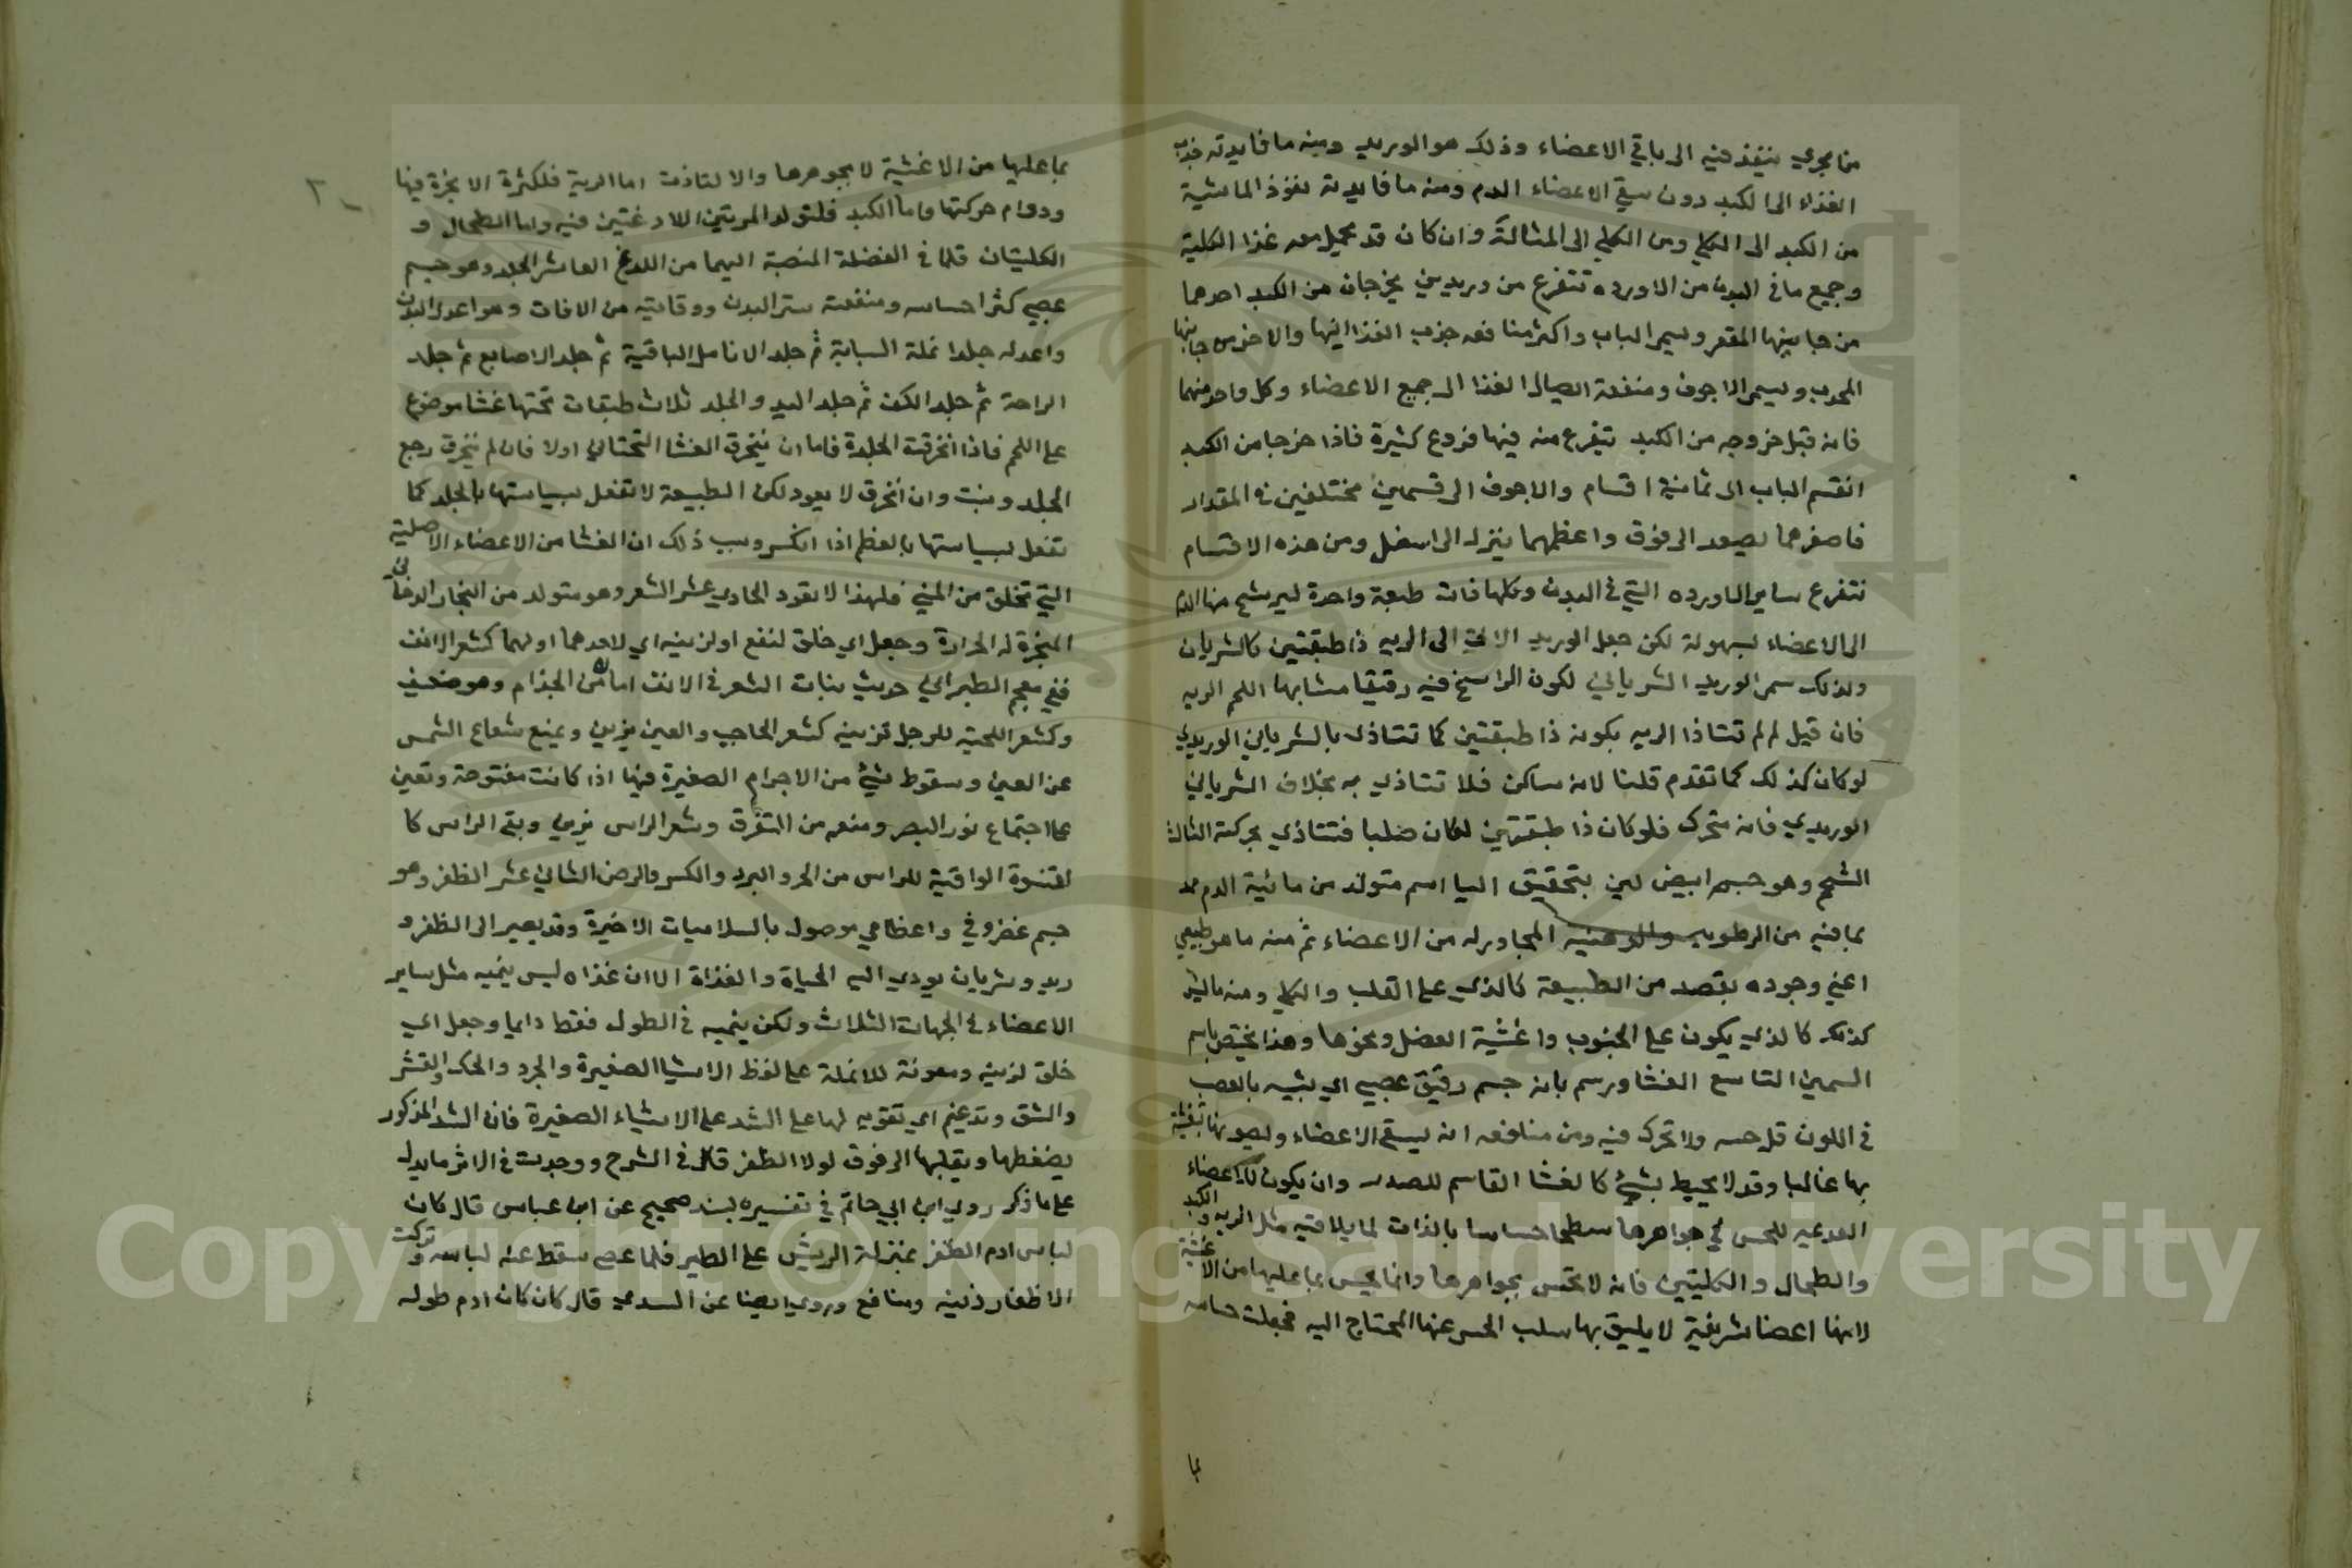 من مجرى ينفذ فيه الى باقي الاعضاء وذلك هو الوريد ومنه ما فايدته جذب
الغذاء الى الكبد دون سقي الاعضاء الدم ومنه ما فايدته نفوذ المائية
من الكبد الى الكلى ومن الكلى الى المثانة وان كان قد يحمل معه غذا الكلية
وجميع ما في البدن من الاورده تتفرع من وريدين يخرجان من الكبد احدهما
من جانبها المقعر ويسمى الباب واكثر منافعه جذب الغذا اليها والاخر من جانبها
المحدب ويسمى الاجوف ومنفعة ايصال الغذا الى جميع الاعضاء وكل واحد منهما
فانه قبل خروجه من الكبد يتفرع منه فيها فروع كثيرة فاذا خرجا من الكبد
انقسم الباب الى ثمانية اقسام والاجوف الى قسمين مختلفين في المقدار
فاصغرهما يصعد الى فوق واعظمهما ينزل الى اسفل ومن هذه الاقسام
تتفرع ساير الاورده التي في البدن وكلها ذات طبقة واحدة ليرشح منها الدم
الى الاعضاء بسهولة لكن جعل الوريد الاتي الى الريه ذا طبقتين كالشريان
ولذلك سمي الوريد الشرياني لكون الراسخ فيه رقيقا مشابها اللحم الريه
فان قيل لم لم تتاذا الريه بكونه ذا طبقتين كما تتاذى بالشرياني الوريدي
لو كان كذلك كما تقدم قلنا لانه ساكن فلا تتاذى به بخلاف الشرياني
الوريدي فانه متحرك فلو كان ذا طبقتين لكان صلبا فتتاذي بحركته الثالث
الشحم وهو جسم ابيض لين بتحقيق اليا اسم متولد من مائية الدم
بما فيه من الرطوبه والدهنيه المجاوره من الاعضاء ثم منه ما هو طبيعي
اعني وجوده بقصد من الطبيعة كالذي على القلب والكلى ومنه ما ليس
كذلك كالذي يكون على الجنوب واغشية العضل ونحوها وهذا يختص باسم
السمين التاسع الغشا ورسم بانه جسم رقيق عصبي اي يشبه بالعصب
في اللون قل حسه ولا تحرك فيه ومن منافعه انه ليستر الاعضاء ويصونها
بها غالبا وقد لا يحيط بشيء كالغشا القاسم للصدر وان يكون للاعضاء
العدميه للحس في جواهرها سطحا حساسا بالذات لما يلاقيه مثل الريه والكبد
والطحال والكليتين فانه لا تحس بجواهرها وانما يحس بما عليها من الاغشية
لانها اعضا شريفة لا يليق بها سلب الحس عنها المحتاج اليه فجعلت حساسه
بما
٢٠
بما عليها من الاغشية لا بجوهرها والا لتاذت اما الرية فلكثرة الابخرة فيها
ودوام حركتها واما الكبد فلتولد المرتين اللادغتين فيه واما الطحال و
الكليتان فلما في الفضلة المنصبة اليهما من اللدغ العاشر الجلد وهو جسم
عصبي كثر احساسه ومنفعته ستر البدن ووقايته من الافات وهو اعدل البدن
واعدله جلد انملة السبابة ثم جلد الانامل الباقية ثم جلد الاصابع ثم جلد
الراحة ثم جلد الكف ثم جلد اليد والجلد ثلاث طبقات تحتها غشا موضوع
على اللحم فاذا انخرقت الجلدة فاما ان ينخرق الغشا التحتاني اولا فان لم ينخرق رجع
الجلد ونبت وان انخرق لا يعود لكن الطبيعة لا تفعل بسياستها بالجلد كما
تفعل بسياستها بالعظم اذا انكسر وسبب ذلك ان الغشا من الاعضاء الاصلية
التي تخلق من المني فلهذا لا تعود الحادي عشر الشعر وهو متولد من البخار الدخاني
المبخرة له الحرارة وجعل اي خلق لنفع او لزينه اي لاحدهما او لهما كشعر الانف
ففي معجم الطبراني حديث نبات الشعر في الانف امان من الجذام وهو ضعيف
وكشعر اللحية للرجل تزينه كشعر الحاجب والعين يزين ويمنع شعاع الشمس
عن العين وسقوط شيء من الاجرام الصغيرة فيها اذا كانت مفتوحة وتعين
على اجتماع نور البصر ومنعه من التفرق وشعر الراس يزين ويقي الراس كا
لقلنسوة الواقية للراس من الحر والبرد والكسر والرض الثاني عشر الظفر وهو
جسم غضروفي واعظامي موصول بالسلاميات الاخيرة وقد يصير الى الظفر و
ريد وشريان يودي اليه الحياة والغذاة الا ان غذاه ليس ينميه مثل ساير
الاعضاء في الجهات الثلاث ولكن ينميه في الطول فقط دايما وجعل اي
خلق لزينه ومعونة للانملة على لفظ الاشيا الصغيرة والجرد والحك والقشر
والشق وتدعيم اي تقويه لها على الشد على الاشياء الصغيرة فان الشد المذكور
يضغطها ويقلبها الى فوق لولا الظفر قال في الشرح ووجدت في الاثر ما يدل
على ما ذكر روى ابن ابي حاتم في تفسيره بسند صحيح عن ابن عباس قال كان
لباس ادم الظفر بمنزلة الريش على الطير فلما عصى سقط عنه لباسه وتركت
الاظفار زينه ومنافع وروي ايضا عن السدي قال كان كان ادم طوله
Copyright © King Saud University